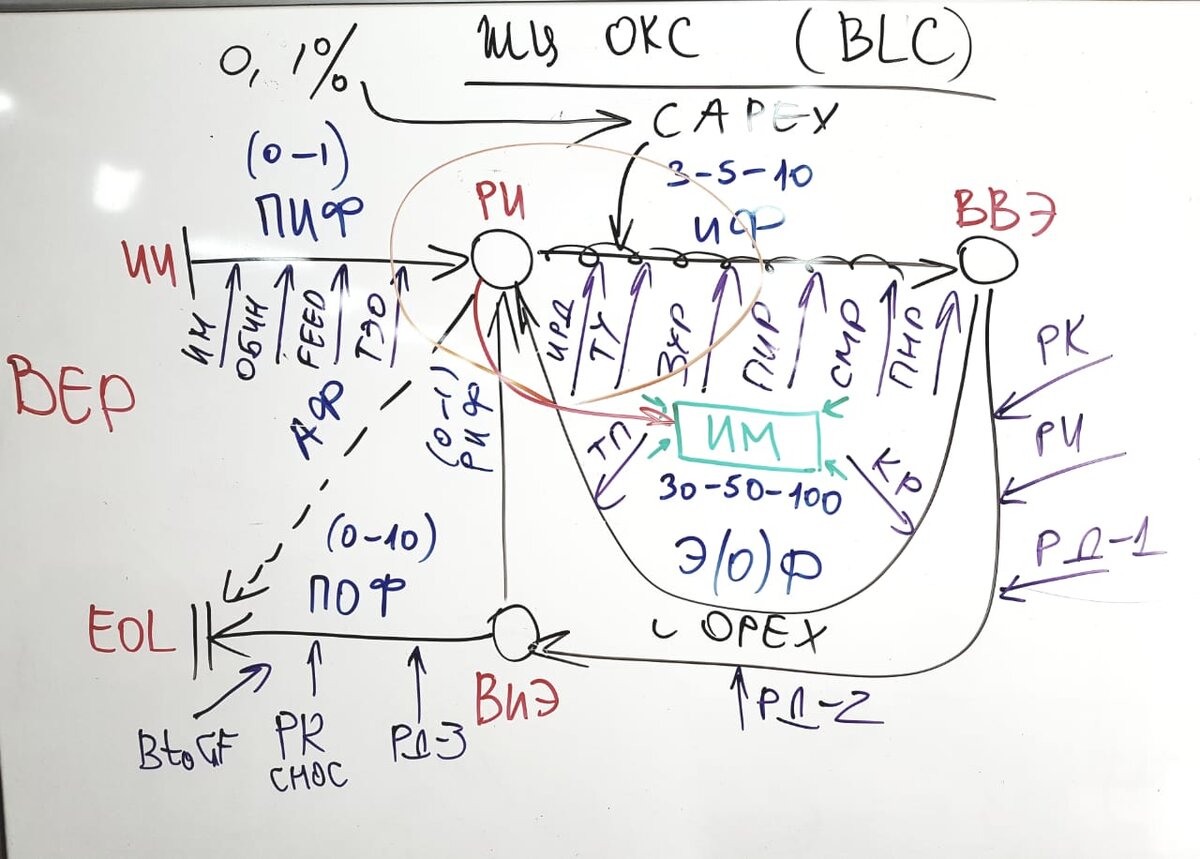 ЖЦ ОКС (BLC)
0,1%
CAPEX
(0-1)
3-5-10
ПИФ
РИ
ИФ
ВВЭ
ИИ
ИМ
ОБИН
FEED
ТЭО
ИРД
ТУ
ВХР
ПИР
СМР
ПНР
РК
BEP
АФ
(0-1)
РИФ
ТП
ИМ
КР
РИ
30-50-100
(0-10)
Э(О)Ф
РД-1
ПОФ
EOL
OPEX
ВИЭ
BtoGF
РК
СНОС
РД-3
РД-2